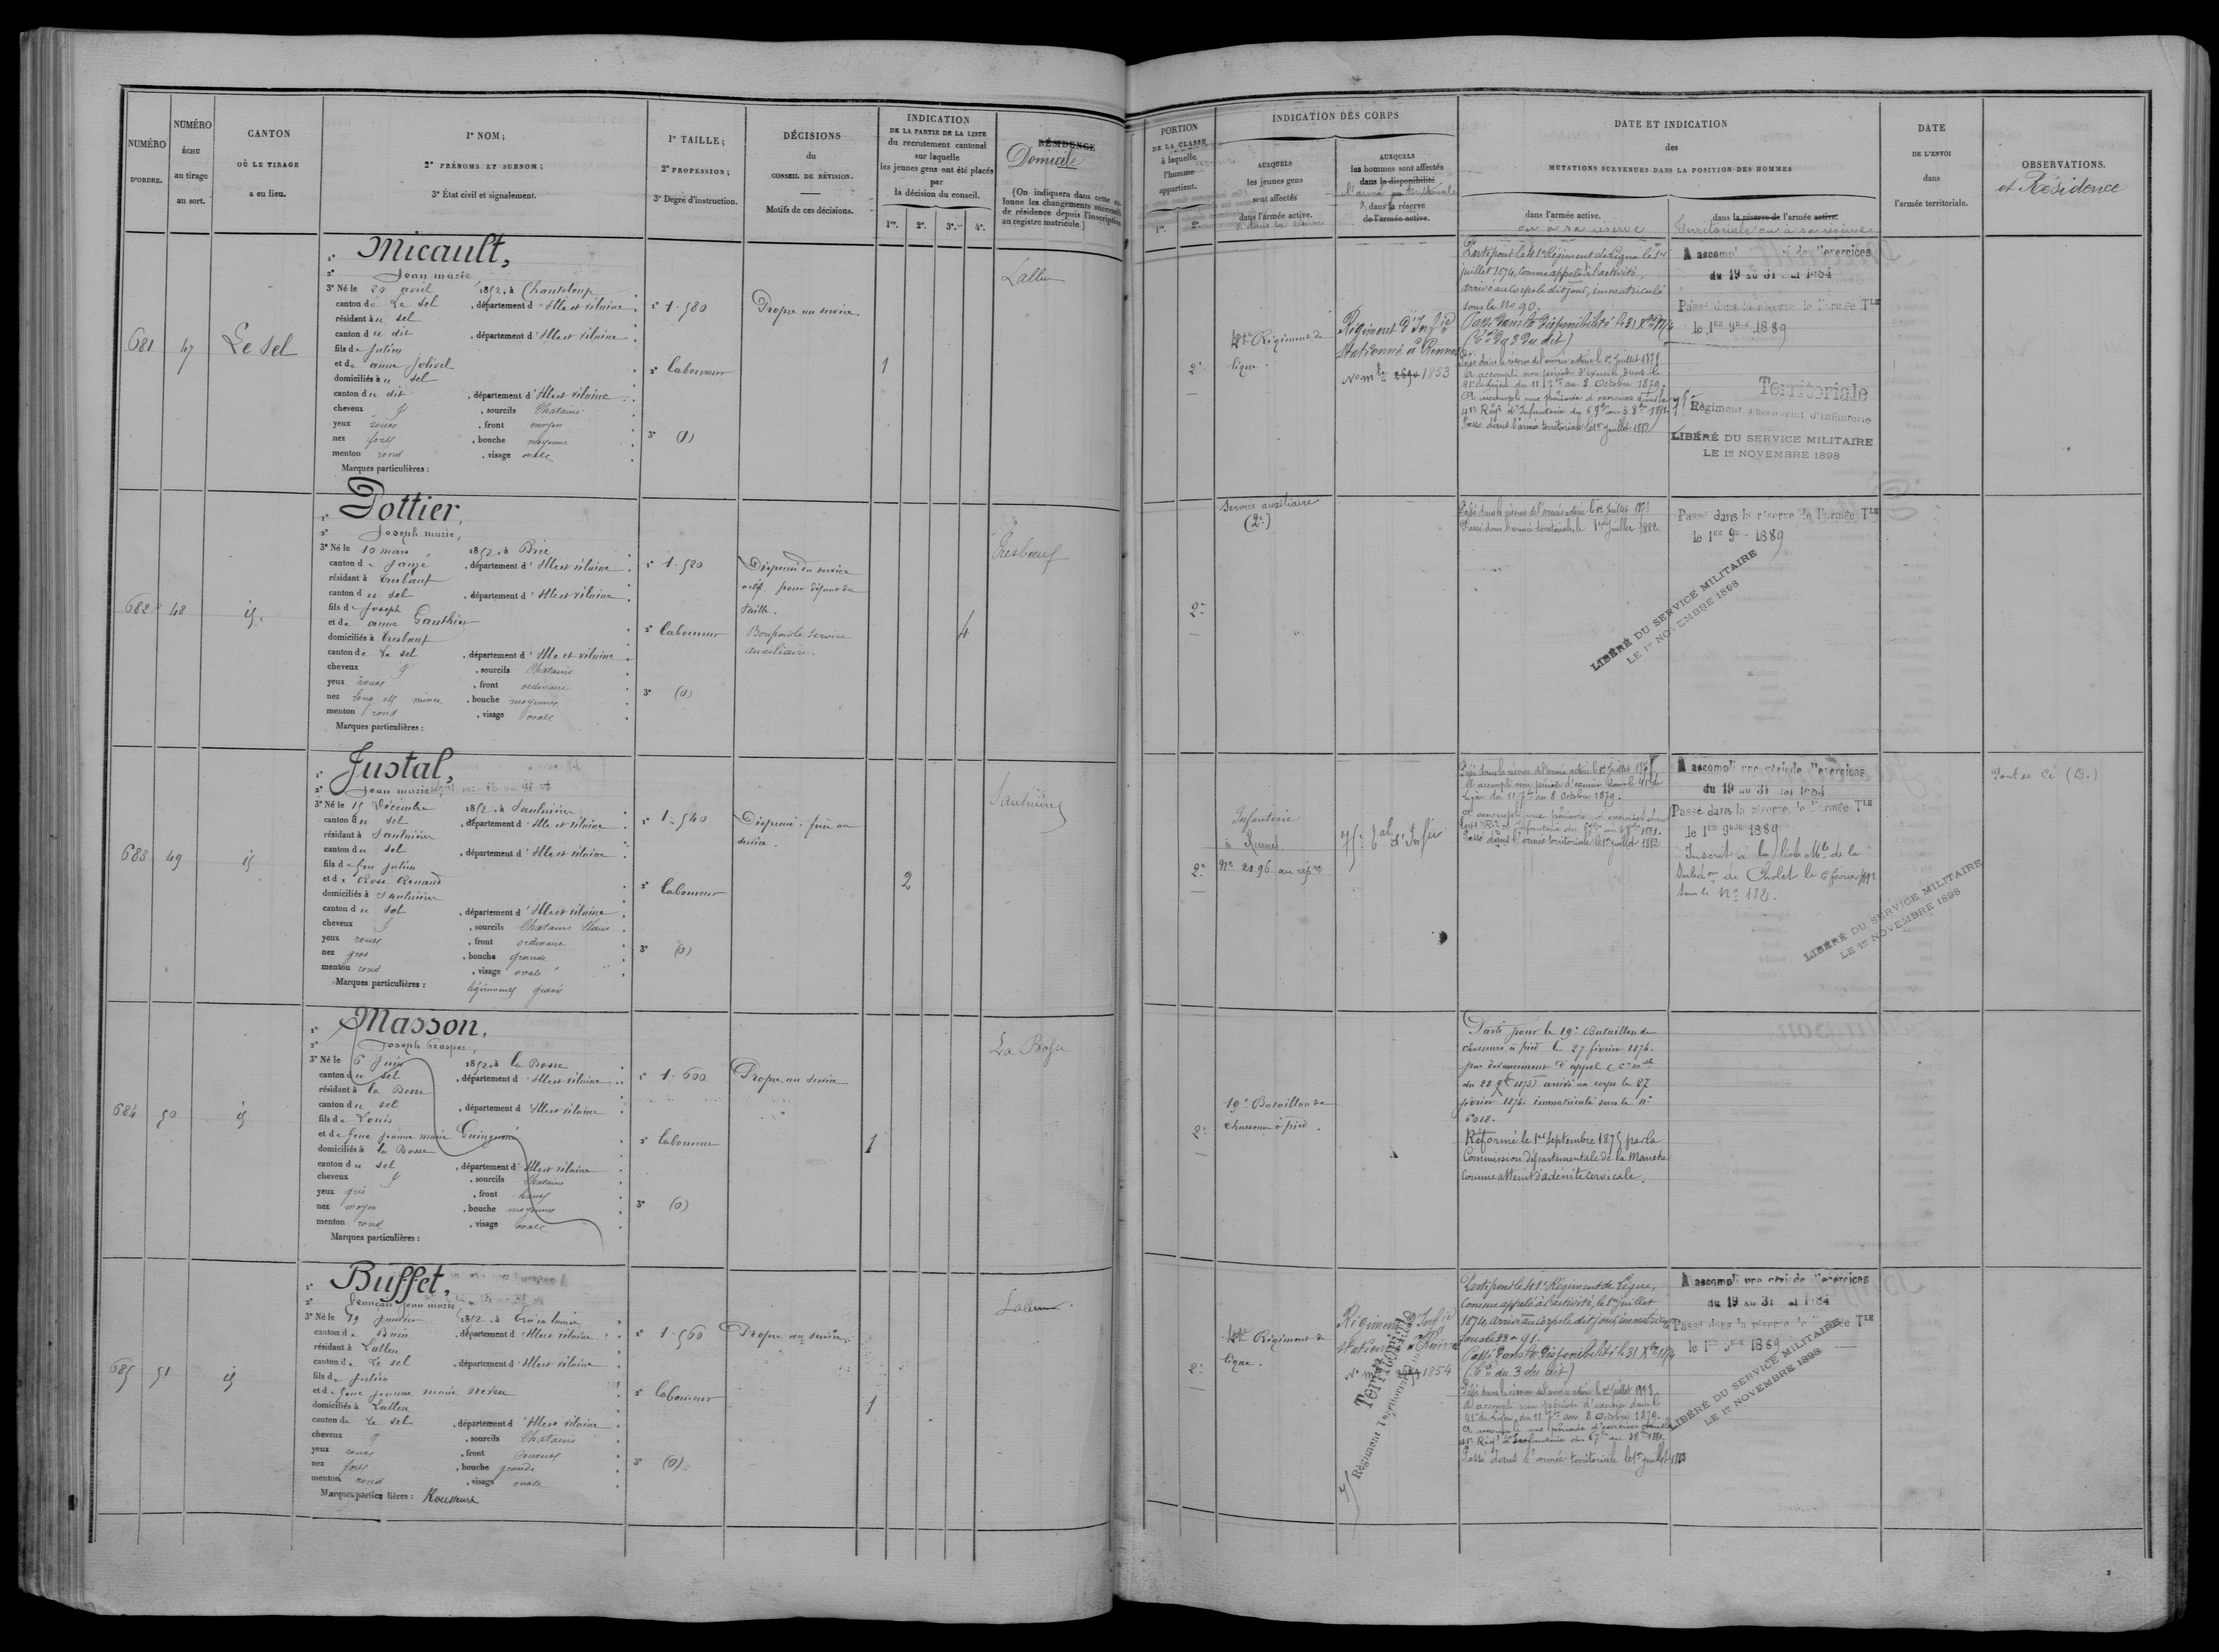 NUMÉRO
D'ORDRE.
NUMÉRO
ÉCHU
au tirage
au sort.
CANTON
OÙ LE TIRAGE
a eu lieu.
1° NOM;
2° PRÉNOMS ET SURNOM;
3° État civil et signalement.
1° TAILLE;
2° PROFESSION;
3° Degré d'instruction.
DÉCISIONS
du
CONSEIL DE RÉVISION.
Motifs de ces décisions.
INDICATION
DE LA PARTIE DE LA LISTE
du recrutement cantonal
sur laquelle
les jeunes gens ont été placés
par
la décision du conseil.
1re. 2e. 3e. 4e.
RÉSIDENCE
Domicile
(On indiquera dans cette co-
lonne les changements successifs
de résidence depuis l'inscription
au registre matricule)
681
47
Le Sel
1° Micault,
2° Jean marie
3° Né le 20 avril 1852, à Chanteloup
canton de Le sel, département d'Ille et vilaine
résidant à u sel
canton du dit, département d'Ille et vilaine
fils de Julien
et de anne Jolivel
domiciliés à u sel
canton du dit, département d'Ille et vilaine
cheveux, sourcils Chatains
yeux roux, front moyen
nez fort, bouche moyenne
menton rond, visage ovale
Marques particulières :
1° 1.580
2° laboureur
3° (1)
Propre au service.
1
Lalleu
682
48
id.
1° Pottier,
2° Joseph marie,
3° Né le 10 mars 1852, à Brie
canton de Janzé, département d'Ille et vilaine
résidant à Tresbœuf
canton du sel, département d'Ille et vilaine
fils de Joseph
et de anne Gauthier
domiciliés à Tresbœuf
canton de Le sel, département d'Ille et vilaine
cheveux, sourcils Chatains
yeux roux, front ordinaire
nez long et mince, bouche moyenne
menton rond, visage ovale
Marques particulières :
1° 1.520
2° laboureur
3° (0)
Dispensé du service
actif pour défaut de
taille.
Bon pour le Service
auxiliaire.
4
Tresbœuf
683
49
id
1° Justal,
2° Jean marie
3° Né le 15 Décembre 1852, à Saulnières
canton du sel, département d'Ille et vilaine
résidant à Saulnières
canton du sel, département d'Ille et vilaine
fils de feu Julien
et de Rose Renaud
domiciliés à Saulnières
canton du sel, département d'Ille et vilaine
cheveux, sourcils Chatains Clairs
yeux roux, front ordinaire
nez gros, bouche grande
menton rond, visage ovale
Marques particulières : légèrement gravé
1° 1.540
2° laboureur
3° (0)
Dispensé. frère au
service.
2
Saulnières
684
50
id
1° Masson,
2° Joseph Prosper,
3° Né le 6 Juin 1852, à la Bosse
canton du sel, département d'Ille et vilaine
résidant à la Bosse
canton du sel, département d'Ille et vilaine
fils de Louis
et de feue Jeanne marie
domiciliés à la Bosse
canton du sel, département d'Ille et vilaine
cheveux, sourcils Chatains
yeux gris, front haut
nez moyen, bouche moyenne
menton rond, visage ovale
Marques particulières :
1° 1.600
2° laboureur
3° (0)
Propre au service
1
La Bosse
685
51
id
1° Buffet,
2° François Jean marie,
3° Né le 19 Janvier 1852, à Ercé en lamée
canton de Bain, département d'Ille et vilaine
résidant à Lalleu
canton de Le sel, département d'Ille et vilaine
fils de Julien
et de feue Jeanne marie
domiciliés à Lalleu
canton de Le sel, département d'Ille et vilaine
cheveux, sourcils Chatains
yeux roux, front couvert
nez fort, bouche grande
menton rond, visage ovale
Marques particulières : Rousseurs
1° 1.560
2° laboureur
3° (0)
Propre au service
1
Lalleu
PORTION
DE LA CLASSE
à laquelle
l'homme
appartient.
1re. 2e.
INDICATION DES CORPS
AUXQUELS
les jeunes gens
sont affectés
dans l'armée active.
& dans sa réserve
AUXQUELS
les hommes sont affectés
dans la disponibilité
l'armée territoriale
& dans la réserve
de l'armée active.
DATE ET INDICATION
des
MUTATIONS SURVENUES DANS LA POSITION DES HOMMES
dans l'armée active.
ou à sa réserve
dans la réserve de l'armée active.
Territoriale ou à sa réserve
DATE
DE L'ENVOI
dans
l'armée territoriale.
OBSERVATIONS.
et Résidence
2e
41e Régiment de
ligne.
Régiment d'Infie
Stationné à Rennes
No mle 2690 1853
Parti pour le 41e Régiment de Ligne le 1er
juillet 1874, Comme appelé à l'activité,
arrivé au Corps le dit jour, immatriculé
sous le No 90.
Passé dans la disponibilité le 31 Xbre 1874
(C. du 3 du dit)
Passé dans la réserve de l'armée active le 1er Juillet 1878
A accompli une période d'exercice dans le
41e de Ligne du 11 7bre au 8 Octobre 1879.
A accompli une période d'exercices dans le
41e Régt d'Infanterie du 6 9bre au 3 8bre 1881
Passé dans l'armée territoriale le 1er Juillet 1882
A accompli une période d'exercices
du 19 au 31 mai 1884
Passé dans la réserve de l'armée Tle
le 1er 9bre 1889
Territoriale
75e Régiment Territorial d'Infanterie
LIBÉRÉ DU SERVICE MILITAIRE
LE 1er NOVEMBRE 1898
2e
Service auxiliaire
(2e)
Passé dans la réserve de l'armée active le 1er Juillet 1878
Passé dans l'armée territoriale, le 1er Juillet 1882
Passé dans la réserve de l'armée Tle
le 1er 9bre 1889
LIBÉRÉ DU SERVICE MILITAIRE
LE 1er NOVEMBRE 1898
2e
Infanterie
à Rennes
No 2196 au répre
75e Tal d'Infie
Passé dans la réserve de l'armée active le 1er Juillet 1878
A accompli une période d'exercice dans le 41e de
Ligne du 11 7bre au 8 Octobre 1879.
A accompli une période d'exercices dans
le 41e Régt d'Infanterie du 6 9bre au 3 8bre 1881.
Passé dans l'armée territoriale le 1er Juillet 1882
A accompli une période d'exercices
du 19 au 31 mai 1884
Passé dans la réserve de l'armée Tle
le 1er 9bre 1889
Inscrit à la liste Mle de la
Subdon de Cholet le 6 février 1892
sous le No 132.
LIBÉRÉ DU SERVICE MILITAIRE
LE 1er NOVEMBRE 1898
Pont de Cé (D.)
2e
19e Bataillon de
chasseurs à pied.
Parti pour le 19e Bataillon de
chasseurs à pied le 27 février 1874.
par devancement d'appel (Ce mlle
du 28 9bre 1873) arrivé au corps le 27
février 1874. immatriculé sous le No
6018.
Réformé le 1er Septembre 1875 par la
Commission départementale de la Manche
comme atteint d'adénite cervicale.
2e
41e Régiment de
ligne.
Régiment d'Infie
Stationné à Rennes
No mle 1854
Territorial
75e Régiment Territorial d'Infanterie
Parti pour le 41e Régiment de Ligne,
Comme appelé à l'activité, le 1er Juillet
1874, arrivé au Corps le dit jour, immatriculé
sous le No 91.
Passé dans la disponibilité le 31 Xbre 1874
(C. du 3 du dit)
Passé dans la réserve de l'armée active le 1er Juillet 1878
A accompli une période d'exercice dans le
41e de Ligne du 11 7bre au 8 Octobre 1879.
A accompli une période d'exercices dans le
41e Régt d'Infanterie du 6 7bre au 3 8bre 1881.
Passé dans l'armée territoriale le 1er Juillet 1883
A accompli une période d'exercices
du 19 au 31 mai 1884
Passé dans la réserve de l'armée Tle
le 1er 9bre 1889
LIBÉRÉ DU SERVICE MILITAIRE
LE 1er NOVEMBRE 1898